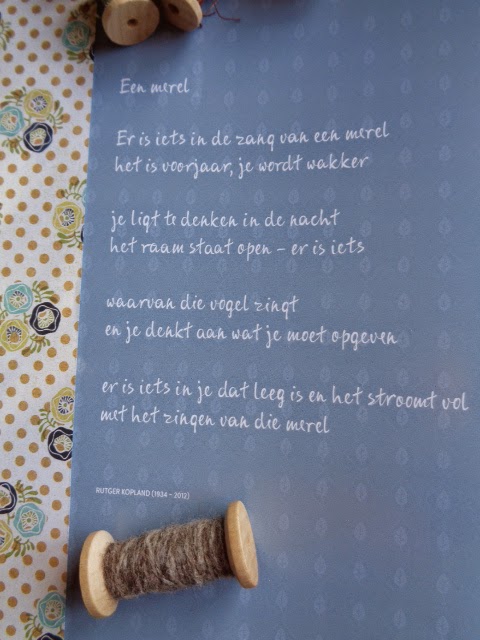 Een merel
Er is iets in de zang van een merel
het is voorjaar, je wordt wakker
je ligt te denken in de nacht
het raam staat open – er is iets
waarvan die vogel zingt
en je denkt aan wat je moet opgeven
er is iets in je dat leeg is en het stroomt vol
met het zingen van die merel
RUTGER KOPLAND (1934 – 2012)